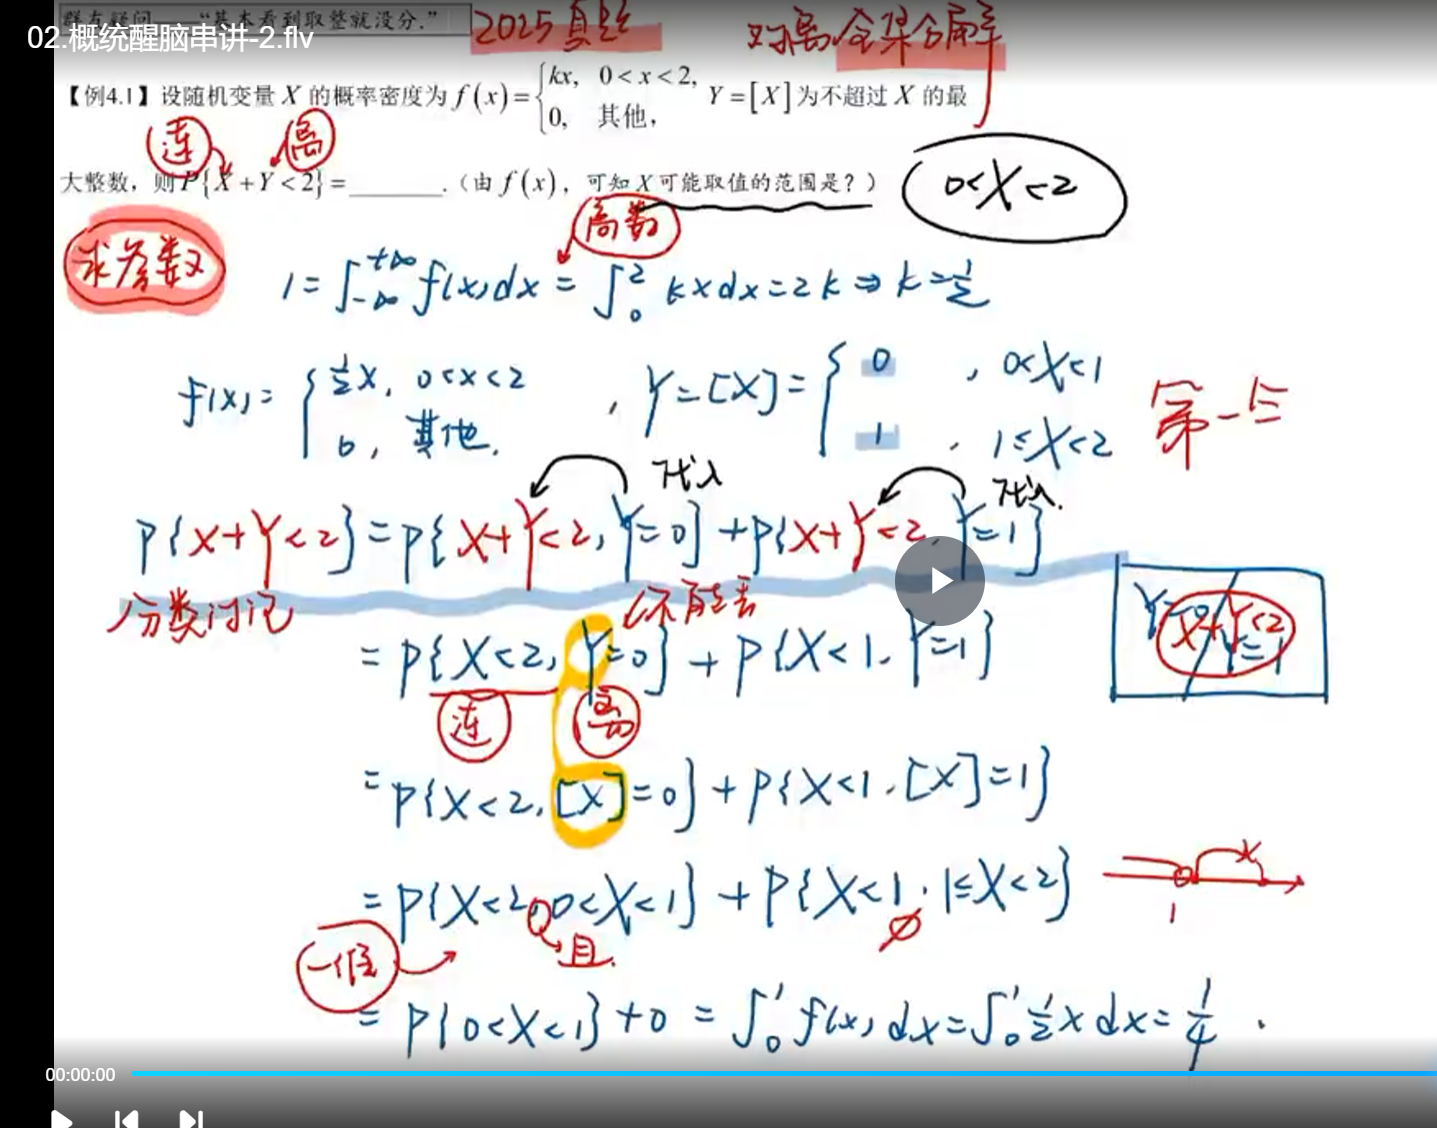 群友疑问——“基本看到取整就没分.”
2025真题
对离全集分解
02.概统醒脑串讲-2.flv
【例4.1】设随机变量 X 的概率密度为 f(x)={kx, 0<x<2, 0, 其他, Y=[X]为不超过 X 的最
连 离
大整数，则P{X+Y<2}=______.（由 f(x)，可知 X 可能取值的范围是？）
0<X<2
求参数
高数
1=∫_{-∞}^{+∞} f(x)dx=∫_0^2 kxdx=2k⇒k=1/2
f(x)={1/2x, 0<x<2 0, 其他. , Y=[X]={0 , 0<X<1 1 , 1≤X<2
第一步
代入 代入.
P{X+Y<2}=P{X+Y<2, Y=0}+P{X+Y<2, Y=1}
分类讨论
不能丢
Y=0 X+Y<2 Y=1
=P{X<2, Y=0}+P{X<1, Y=1}
连 离
=P{X<2, [X]=0}+P{X<1, [X]=1}
=P{X<2, 0<X<1}+P{X<1, 1≤X<2}
且. ∅
1
一维
=P{0<X<1}+0=∫_0^1 f(x)dx=∫_0^1 1/2xdx=1/4.
00:00:00